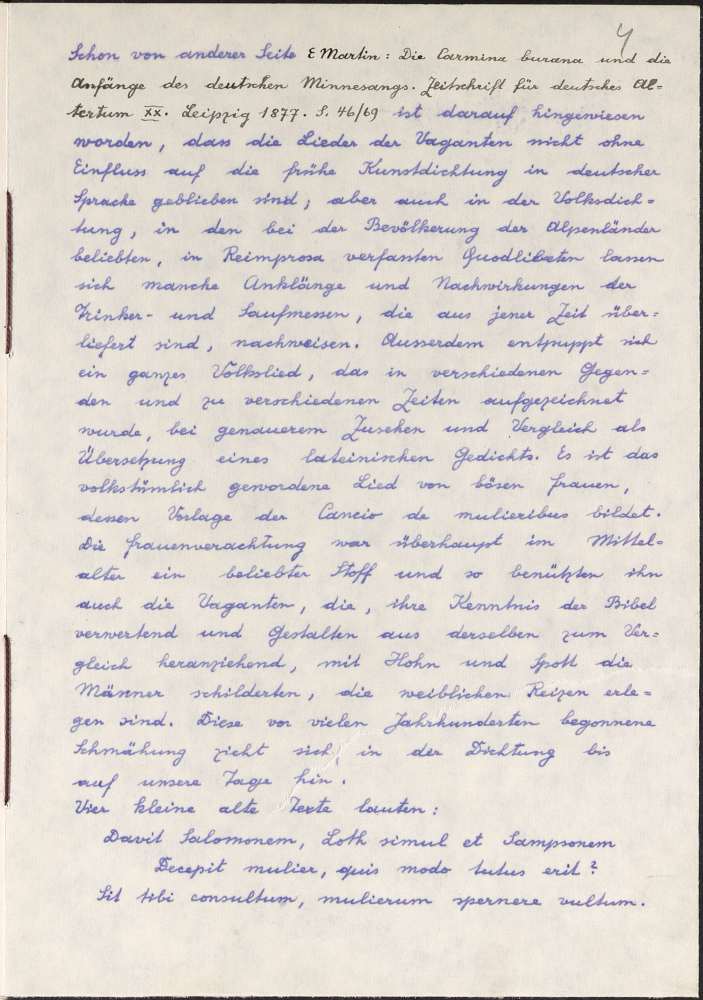 4
Schon von anderer Seite E Martin: Die Carmina burana und die
Anfänge des deutschen Minnesangs. Zeitschrift für deutsches Al=
tertum XX. Leipzig 1877. S. 46/69 ist darauf hingewiesen
worden, dass die Lieder der Vaganten nicht ohne
Einfluss auf die frühe Kunstdichtung in deutscher
Sprache geblieben sind; aber auch in der Volksdich=
tung, in den bei der Bevölkerung der Alpenländer
beliebten, in Reimprosa verfassten Quodlibeten lassen
sich manche Anklänge und Nachwirkungen der
Trinker- und Saufmessen, die aus jener Zeit über=
liefert sind, nachweisen. Ausserdem entpuppt sich
ein ganzes Volkslied, das in verschiedenen Gegen=
den und zu verschiedenen Zeiten aufgezeichnet
wurde, bei genauerem Zusehen und Vergleich als
Übersetzung eines lateinischen Gedichts. Es ist das
volkstümlich gewordene Lied von bösen Frauen,
dessen Vorlage der Cancio de mulieribus bildet.
Die Frauenverachtung war überhaupt im Mittel=
alter ein beliebter Stoff und so benützten ihn
auch die Vaganten, die, ihre Kenntnis der Bibel
verwertend und Gestalten aus derselben zum Ver=
gleich heranziehend, mit Hohn und Spott die
Männer schilderten, die weiblichen Reizen erle=
gen sind. Diese vor vielen Jahrhunderten begonnene
Schmähung zieht sich in der Dichtung bis
auf unsere Tage hin.
Vier kleine alte Texte lauten:
Davit Salomonem, Loth simul et Sampsonem
Decepit mulier, quis modo tutus erit?
Sit tibi consultum, mulierum spernere vultum.